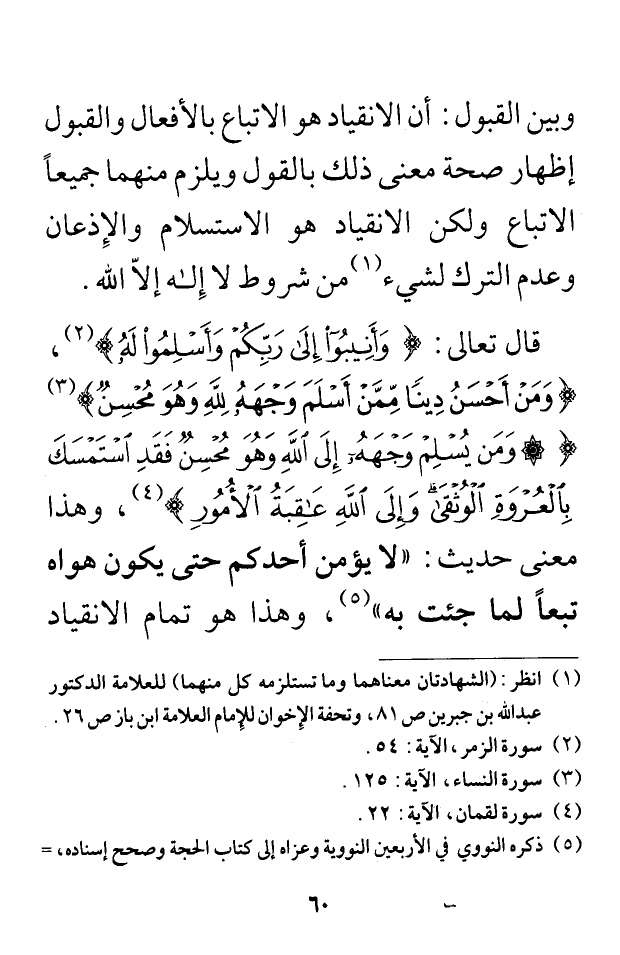 وبين القبول : أن الانقياد هو الاتباع بالأفعال والقبول
إظهار صحة معنى ذلك بالقول ويلزم منهما جميعاً
الاتباع ولكن الانقياد هو الاستسلام والإذعان
وعدم الترك لشيء(١) من شروط لا إله إلاّ الله .
قال تعالى : ﴿ وَأَنِيبُوٓا۟ إِلَىٰ رَبِّكُمْ وَأَسْلِمُوا۟ لَهُۥ﴾(٢) ،
﴿وَمَنْ أَحْسَنُ دِينًا مِّمَّنْ أَسْلَمَ وَجْهَهُۥ لِلَّهِ وَهُوَ مُحْسِنٌ﴾(٣)
﴿ ۞ وَمَن يُسْلِمْ وَجْهَهُۥٓ إِلَى ٱللَّهِ وَهُوَ مُحْسِنٌ فَقَدِ ٱسْتَمْسَكَ
بِٱلْعُرْوَةِ ٱلْوُثْقَىٰ ۗ وَإِلَى ٱللَّهِ عَـٰقِبَةُ ٱلْأُمُورِ ﴾(٤) ، وهذا
معنى حديث : «لا يؤمن أحدكم حتى يكون هواه
تبعاً لما جئت به»(٥) ، وهذا هو تمام الانقياد
(١) انظر : (الشهادتان معناهما وما تستلزمه كل منهما) للعلامة الدكتور
عبدالله بن جبرين ص ٨١، وتحفة الإخوان للإمام العلامة ابن باز ص ٢٦ .
(٢) سورة الزمر، الآية : ٥٤ .
(٣) سورة النساء، الآية : ١٢٥ .
(٤) سورة لقمان، الآية : ٢٢ .
(٥) ذكره النووي في الأربعين النووية وعزاه إلى كتاب الحجة وصحح إسناده، =
٦٠